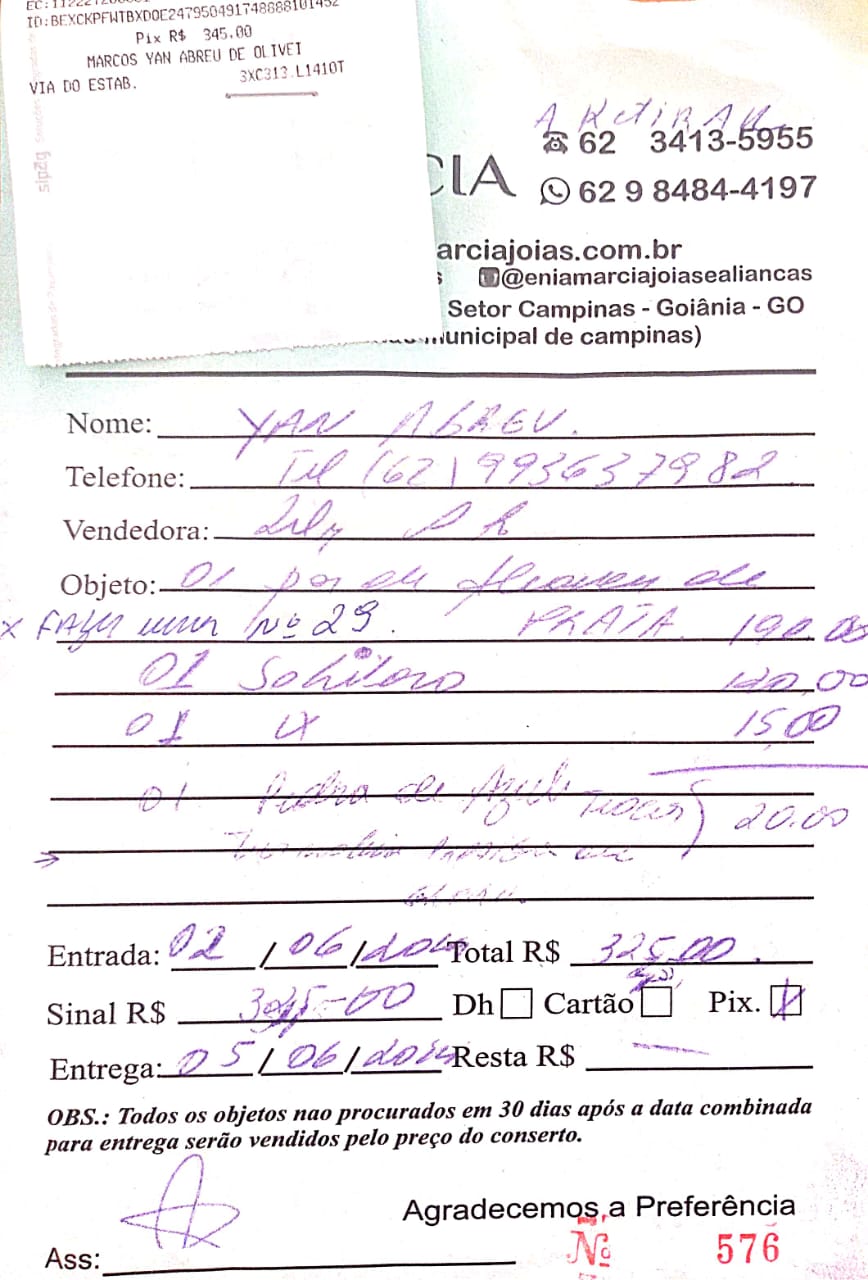 ID:BEXCKPFWTBXDOE247950491748888101452
Pix R$ 345.00
MARCOS YAN ABREU DE OLIVET
VIA DO ESTAB. 3XC313.L1410T
sipag
A Retirar
62 3413-5955
CIA
62 9 8484-4197
arciajoias.com.br
@eniamarciajoiasealiancas
Setor Campinas - Goiânia - GO
municipal de campinas)
Nome: YAN ABREU.
Telefone: Tel (62) 993637982
Vendedora:
Objeto: 01 par de de
x Nº 29. PRATA 190.00
01 Solitario 120,00
01 15,00
01 Pedra de Trocar) 20.00
Entrada: 02 / 06 / Total R$ 325,00.
Sinal R$ Dh Cartão Pix.
Entrega: 05 / 06 / Resta R$
OBS.: Todos os objetos nao procurados em 30 dias após a data combinada
para entrega serão vendidos pelo preço do conserto.
Agradecemos a Preferência
Ass: Nº 576